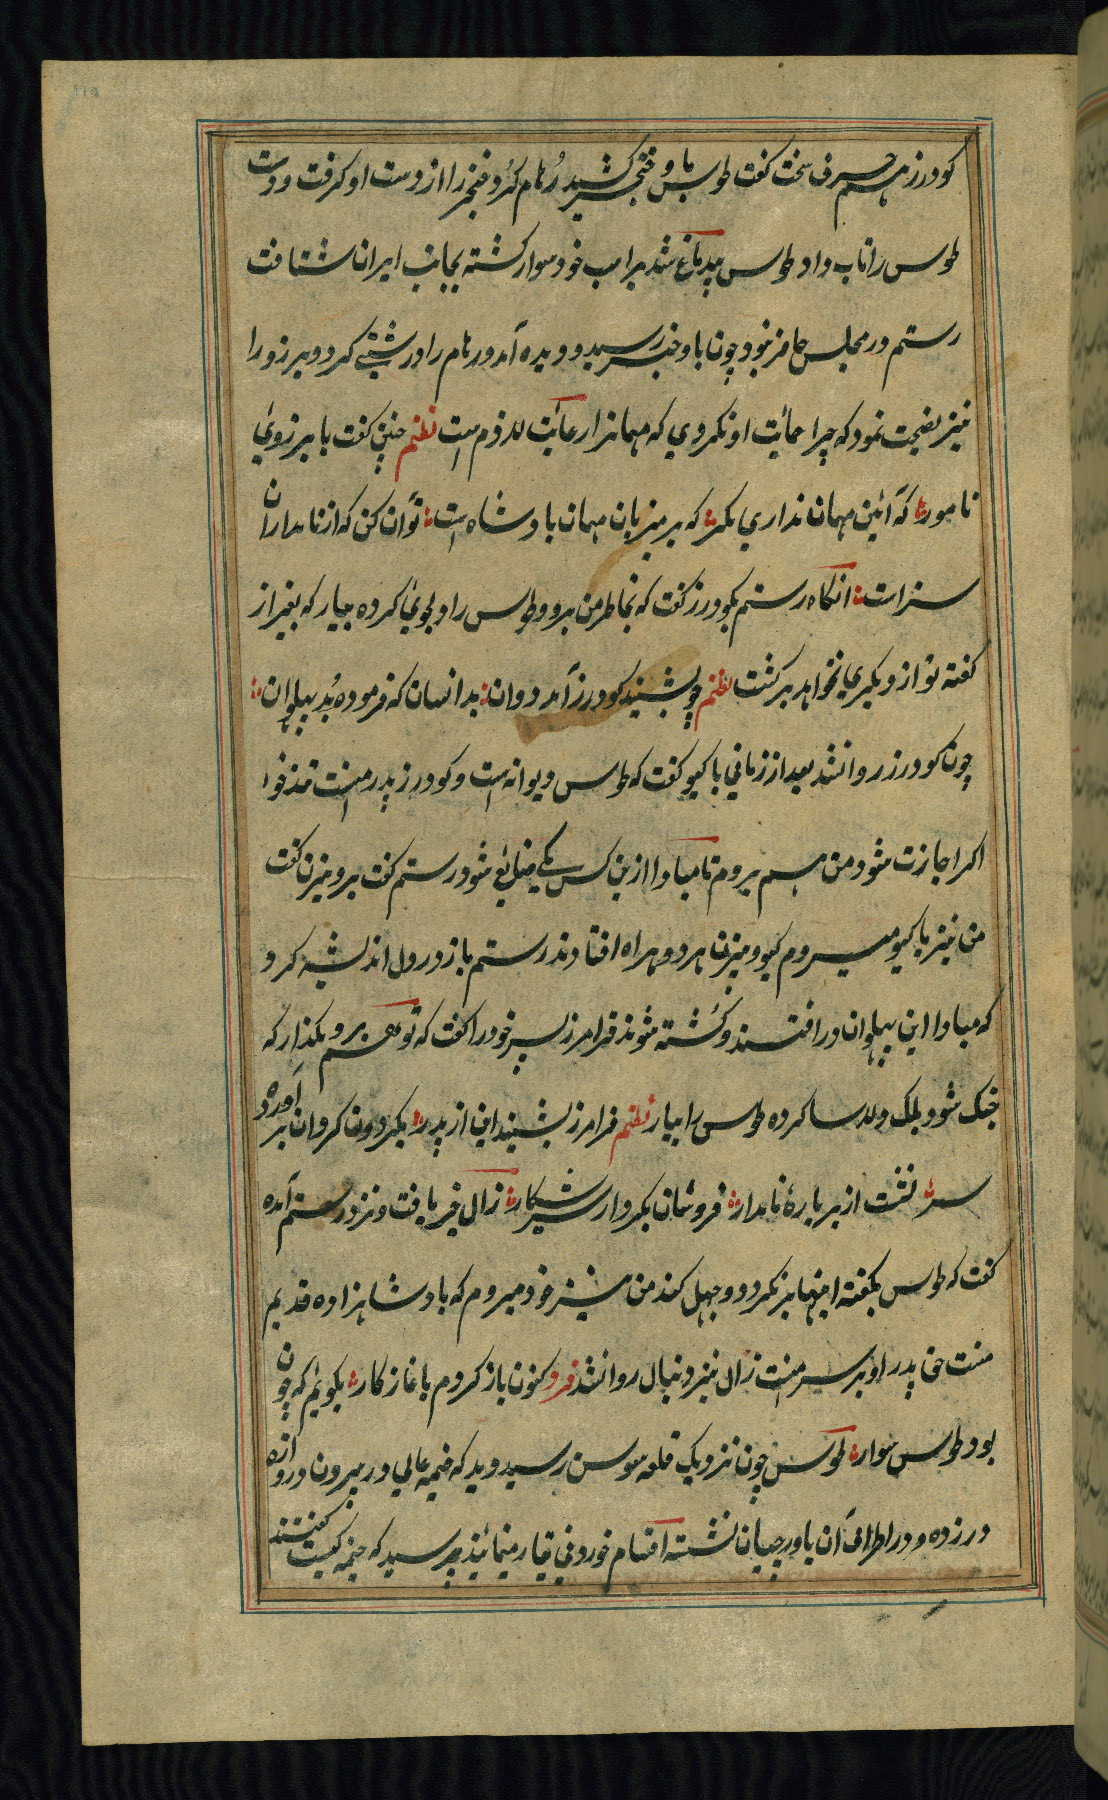 کودرز هم حرف سخت کفت طوس با و خنجر کشید رهام کرد و خنجر را از دست او کرفت و دست
طوس را تاب داد طوس بیدماغ شد بر اسب خود سوار کشته بجانب ایران شتافت
رستم در مجلس حاضر نبود چون با و خبر رسید دویده آمد و رهام را درشتی کرد و برزو را
نیز نصیحت نمود که چرا حمائیت او نکردی که مهمانرا رعائیت لازم است نظم چنین کفت با برزوی
نامور که آئین مهمان نداری مکر که بر میزبان مهمان پادشاه است توآن کن که از نامداران
سزاست آنکاه رستم بکودرز کفت که بخاطر من برو و طوس را دلجوئی کرده بیار که بغیر از
کفته تو از دیکری نخواهد برکشت نظم چو بشنید کودرز آمد دوان بدانسان که فرموده بد پهلوان
چون کودرز روانشد بعد از زمانی با کیو کفت که طوس دیوانه است و کودرز پدر منست
اکر اجازت شود من هم بروم تا مبادا ازین کس یکی ضائع شود رستم کفت برو بیزن کفت
من نیز با کیو میروم کیو و بیزن هر دو همراه افتادند رستم باز در دل اندیشه کرد
که مبادا این پهلوان در افتند و کشته شوند فرامرز پسر خود را کفت که تو هم برو مکذار که
جنک شود بلکه دلاسا کرده طوس را بیار نظم فرامرز بشنید این از پدر بکردون کردان برآورد
سر نشست از بر بارهٔ نامدار خروشان بکردار شیر شکار زال خبر یافت و نزد رستم آمده
کفت که طوس بکفته اینها برنکردد و جهل کند من نیز خود میروم که پادشاهزاده قدیم
منست حق پدر او بر سر منست زال نیز دنبال روانشد فرد کنون باز کردم بآغاز کار بکویم که چون
بود طوس سوار طوس چون نزدیک قلعه سوسن رسید دید که خیمه عالی در بیرون دروازه
در زده و در اطراف آن باورچیان نشسته اقسام خوردنی تیار مینمائند پرسید که خیمه کیست کفتند